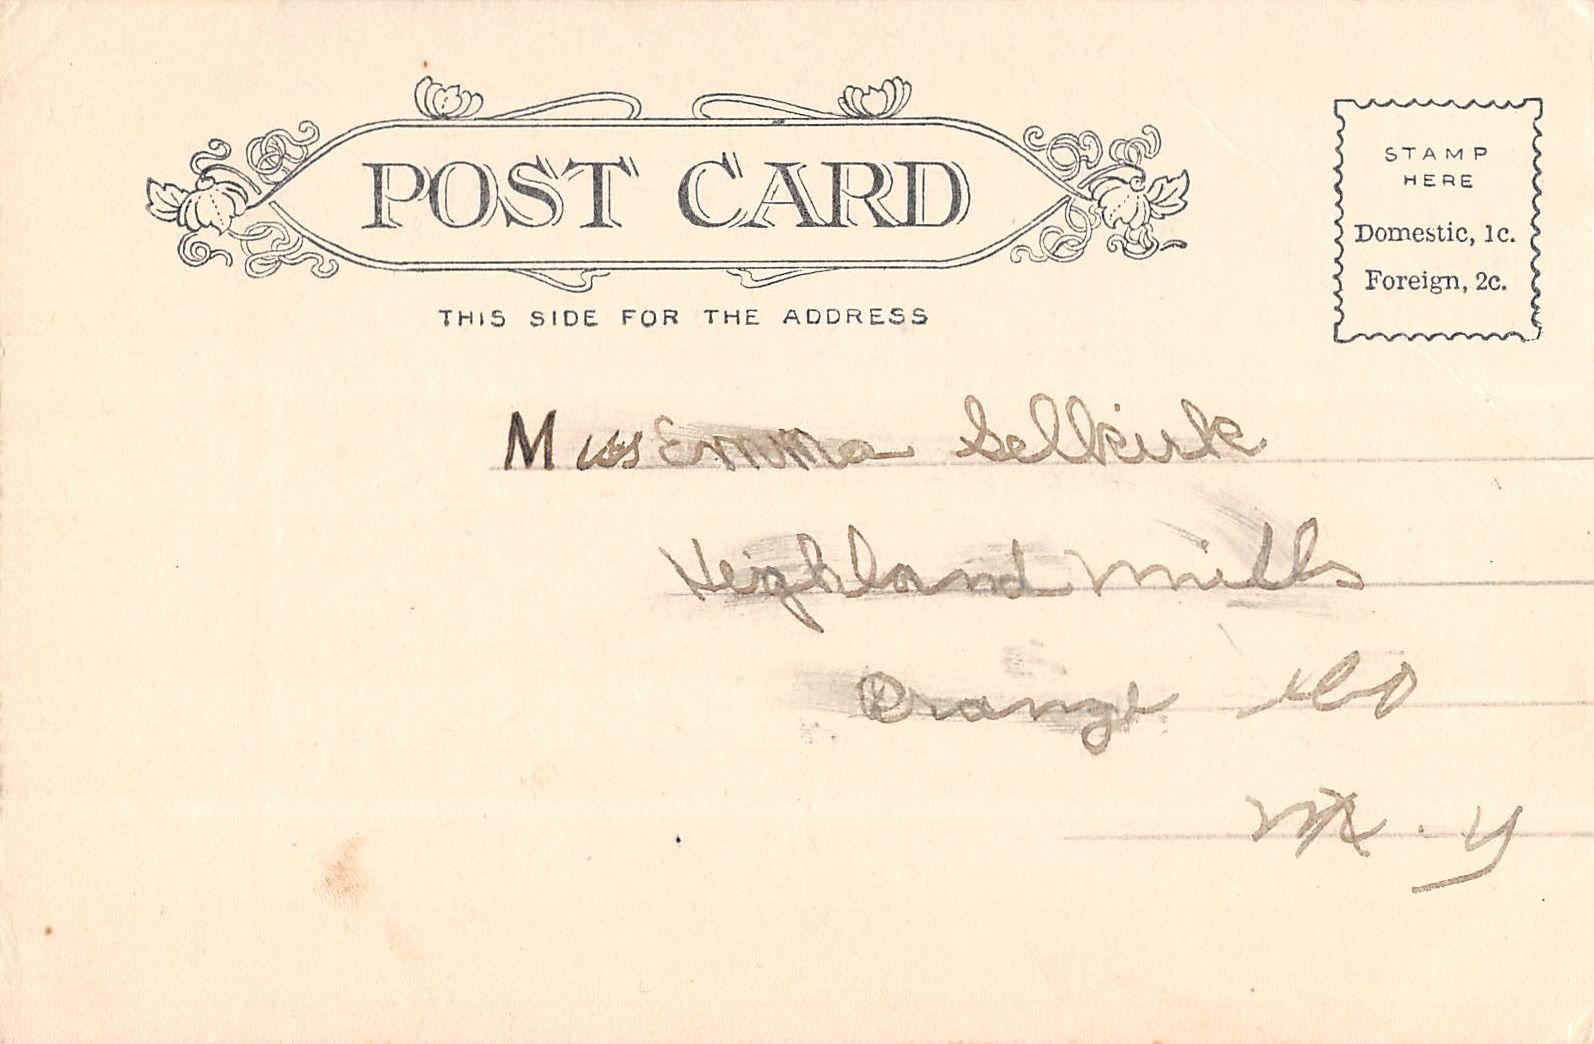 POST CARD
THIS SIDE FOR THE ADDRESS
STAMP
HERE
Domestic, 1c.
Foreign, 2c.
Miss Emma Selkirk
Highland Mills
Orange Co
N. Y